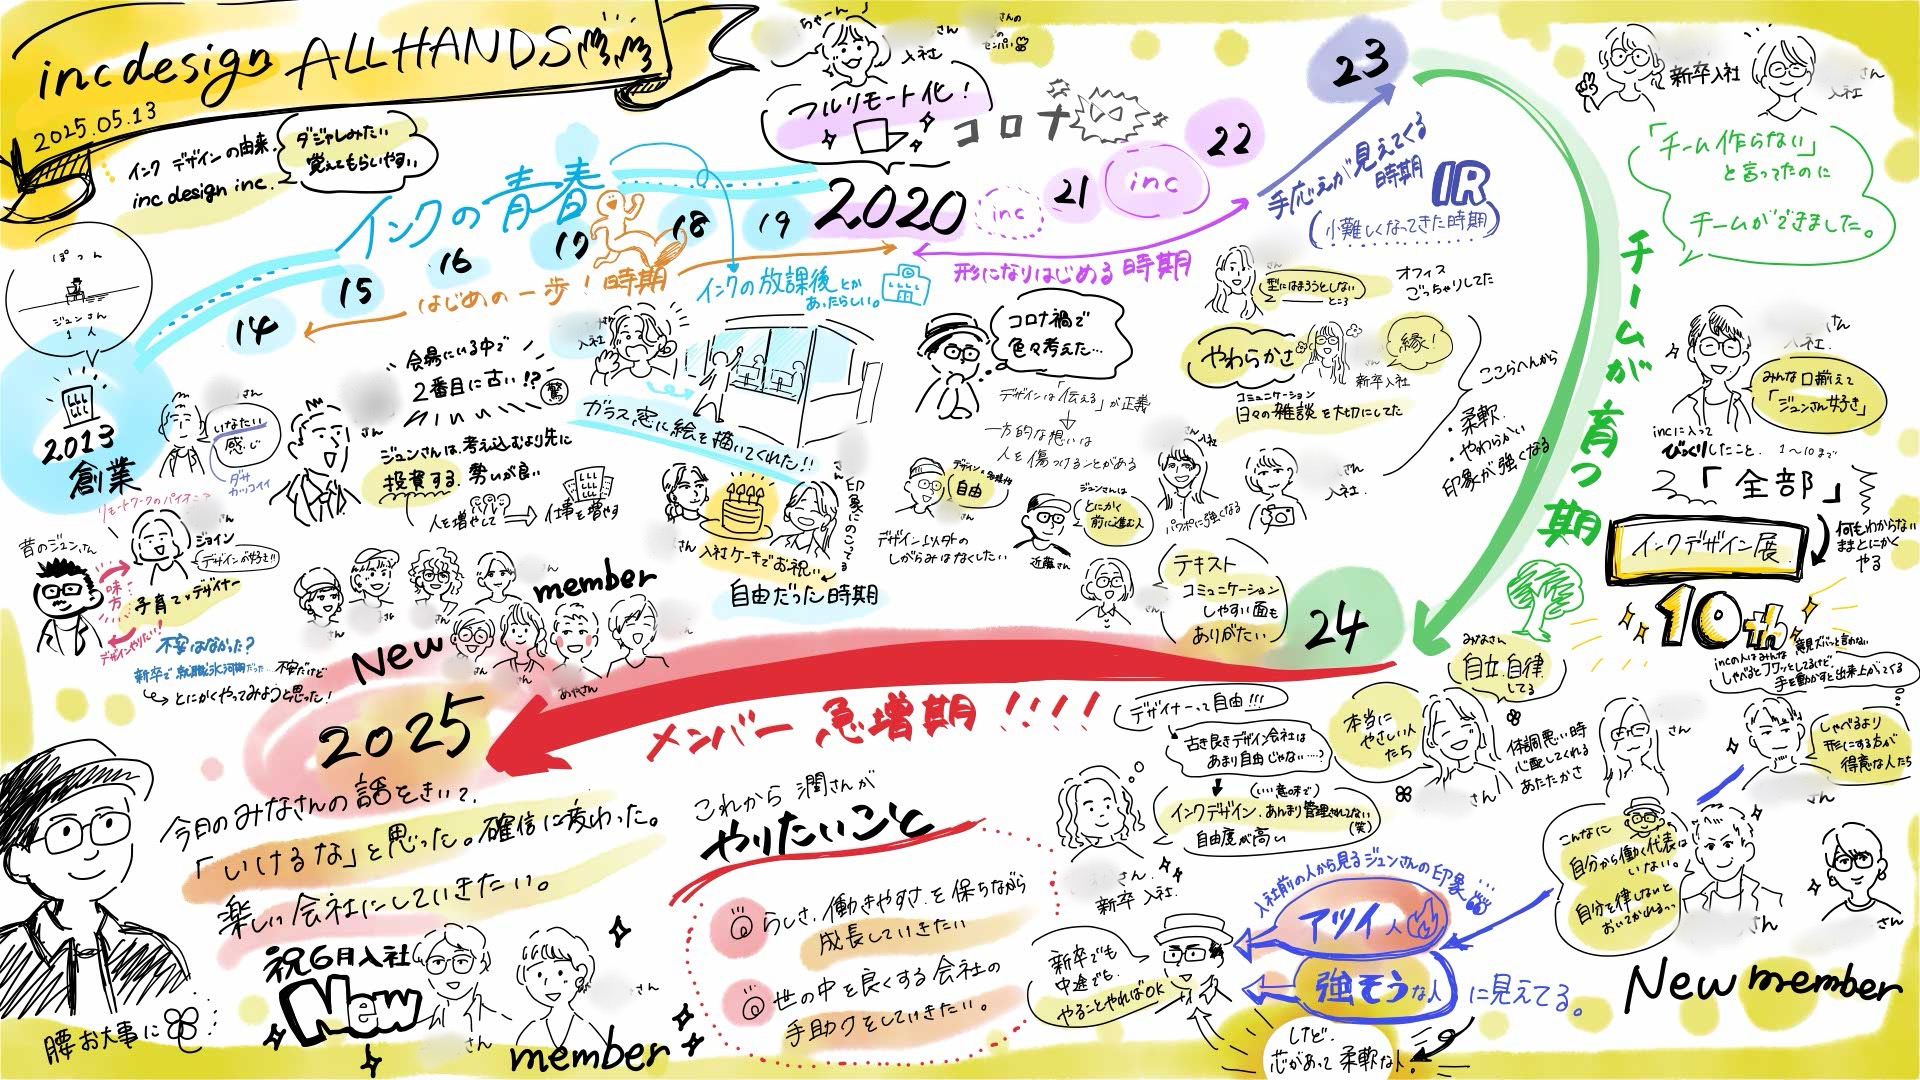 incdesign ALLHANDS
2025.05.13
インク デザインの由来.
inc design inc.
ダジャレみたい
覚えてもらいやすい
ぽつん
ジュンさん
1人
2013
創業
14
15
16
17
18
19
2020
21
22
23
24
2025
インクの青春
はじめの一歩!時期
インクの放課後とか
あったらしい。
ちゃーん
入社
さんの
フルリモート化!
コロナ
inc
inc
形になりはじめる時期
手応えが見えてくる
時期
IR
小難しくなってきた時期
さん
いなたい
感じ
ダサ
カッコイイ
さん
会場にいる中で
2番目に古い!?
驚
ジュンさんは、考え込むより先に
投資する. 勢いが良い
人を増やして
仕事を増やす
入社
ガラス窓に絵を描いてくれた!!
さん
入社ケーキでお祝い
さん
印象にのこってる
自由だった時期
さん
ジョイン
デザインが好き!!
昔のジュンさん
味方
デザインやりたい!
子育てデザイナー
不安はなかった?
新卒で就職氷河期だった…
不安だけど
とにかくやってみようと思った!
New
member
さん
さん
さん
さん
コロナ禍で
色々考えた…
デザインは「伝える」が正義
一方的な想いは
人を傷つけることがある
自由
さん
デザイン以外の
しがらみはなくしたい
ジュンさんは
とにかく
前に進む人
近藤さん
さん
型にはまろうとしない
ところ
オフィス
ごっちゃりしてた
やわらかさ
さん
新卒入社
縁!
コミュニケーション
日々の雑談を大切にしてた
ここらへんから
・柔軟.
・やわらかい
印象が強くなる
入社
パワポに強くなる
さん
入社.
テキスト
コミュニケーション
しやすい面も
ありがたい
さん
チームが育つ期
新卒入社
さん
入社
「チーム作らない」
と言ってたのに
チームができました。
さん
入社.
みんな口揃えて
「ジュンさん好き」
incに入って
びっくりしたこと.
1〜10まで
「全部」
インクデザイン展
何もわからない
ままとにかく
やる
10th
incの人はみんな
意見ズバッと言わない
しゃべるとフワッとしてるけど、
手を動かすと出来上がってくる
みなさん
自立.自律
してる
本当に
やさしい人
たち
さん
体調悪い時
心配してくれる
あたたかさ
さん
しゃべるより
形にする方が
得意な人たち
さん
メンバー急増期!!!!
デザイナーって自由!!!
古き良きデザイン会社は
あまり自由じゃない…?
(いい意味で)
インクデザイン、あんまり管理されてない
(笑)
自由度が高い
さん.
新卒 入社.
こんなに
自分から働く代表は
いない。
自分を律しないと
おいてかれるっっ
さん
さん
New member
入社前の人から見るジュンさんの印象
アツイ人
強そうな人
に見えてる。
新卒でも
中途でも.
やることやればOK
けど、
芯があって柔軟な人.
今日のみなさんの話をきいて、
「いけるな」と思った。確信に変わった。
楽しい会社にしていきたい。
祝6月入社
New
さん
さん
member
腰お大事に
これから 潤さんが
やりたいこと
らしさ、働きやすさを保ちながら
成長していきたい
世の中を良くする会社の
手助けをしていきたい。